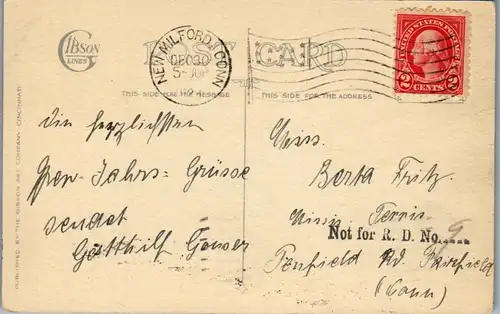 GIBSON
LINES
POST CARD
NEW MILFORD, CONN.
DEC 30
5-PM
UNITED STATES POSTAGE
2 CENTS 2
THIS SIDE FOR THE MESSAGE
THIS SIDE FOR THE ADDRESS
PUBLISHED BY THE GIBSON ART COMPANY, CINCINNATI
Die herzlichsten
Neu-Jahrs-Grüsse
sendet
Gotthilf
Miss.
Berta Fritz.
Miss Ferris
Not for R. D. No.
9
Penfield Rd. Fairfield
(Conn)